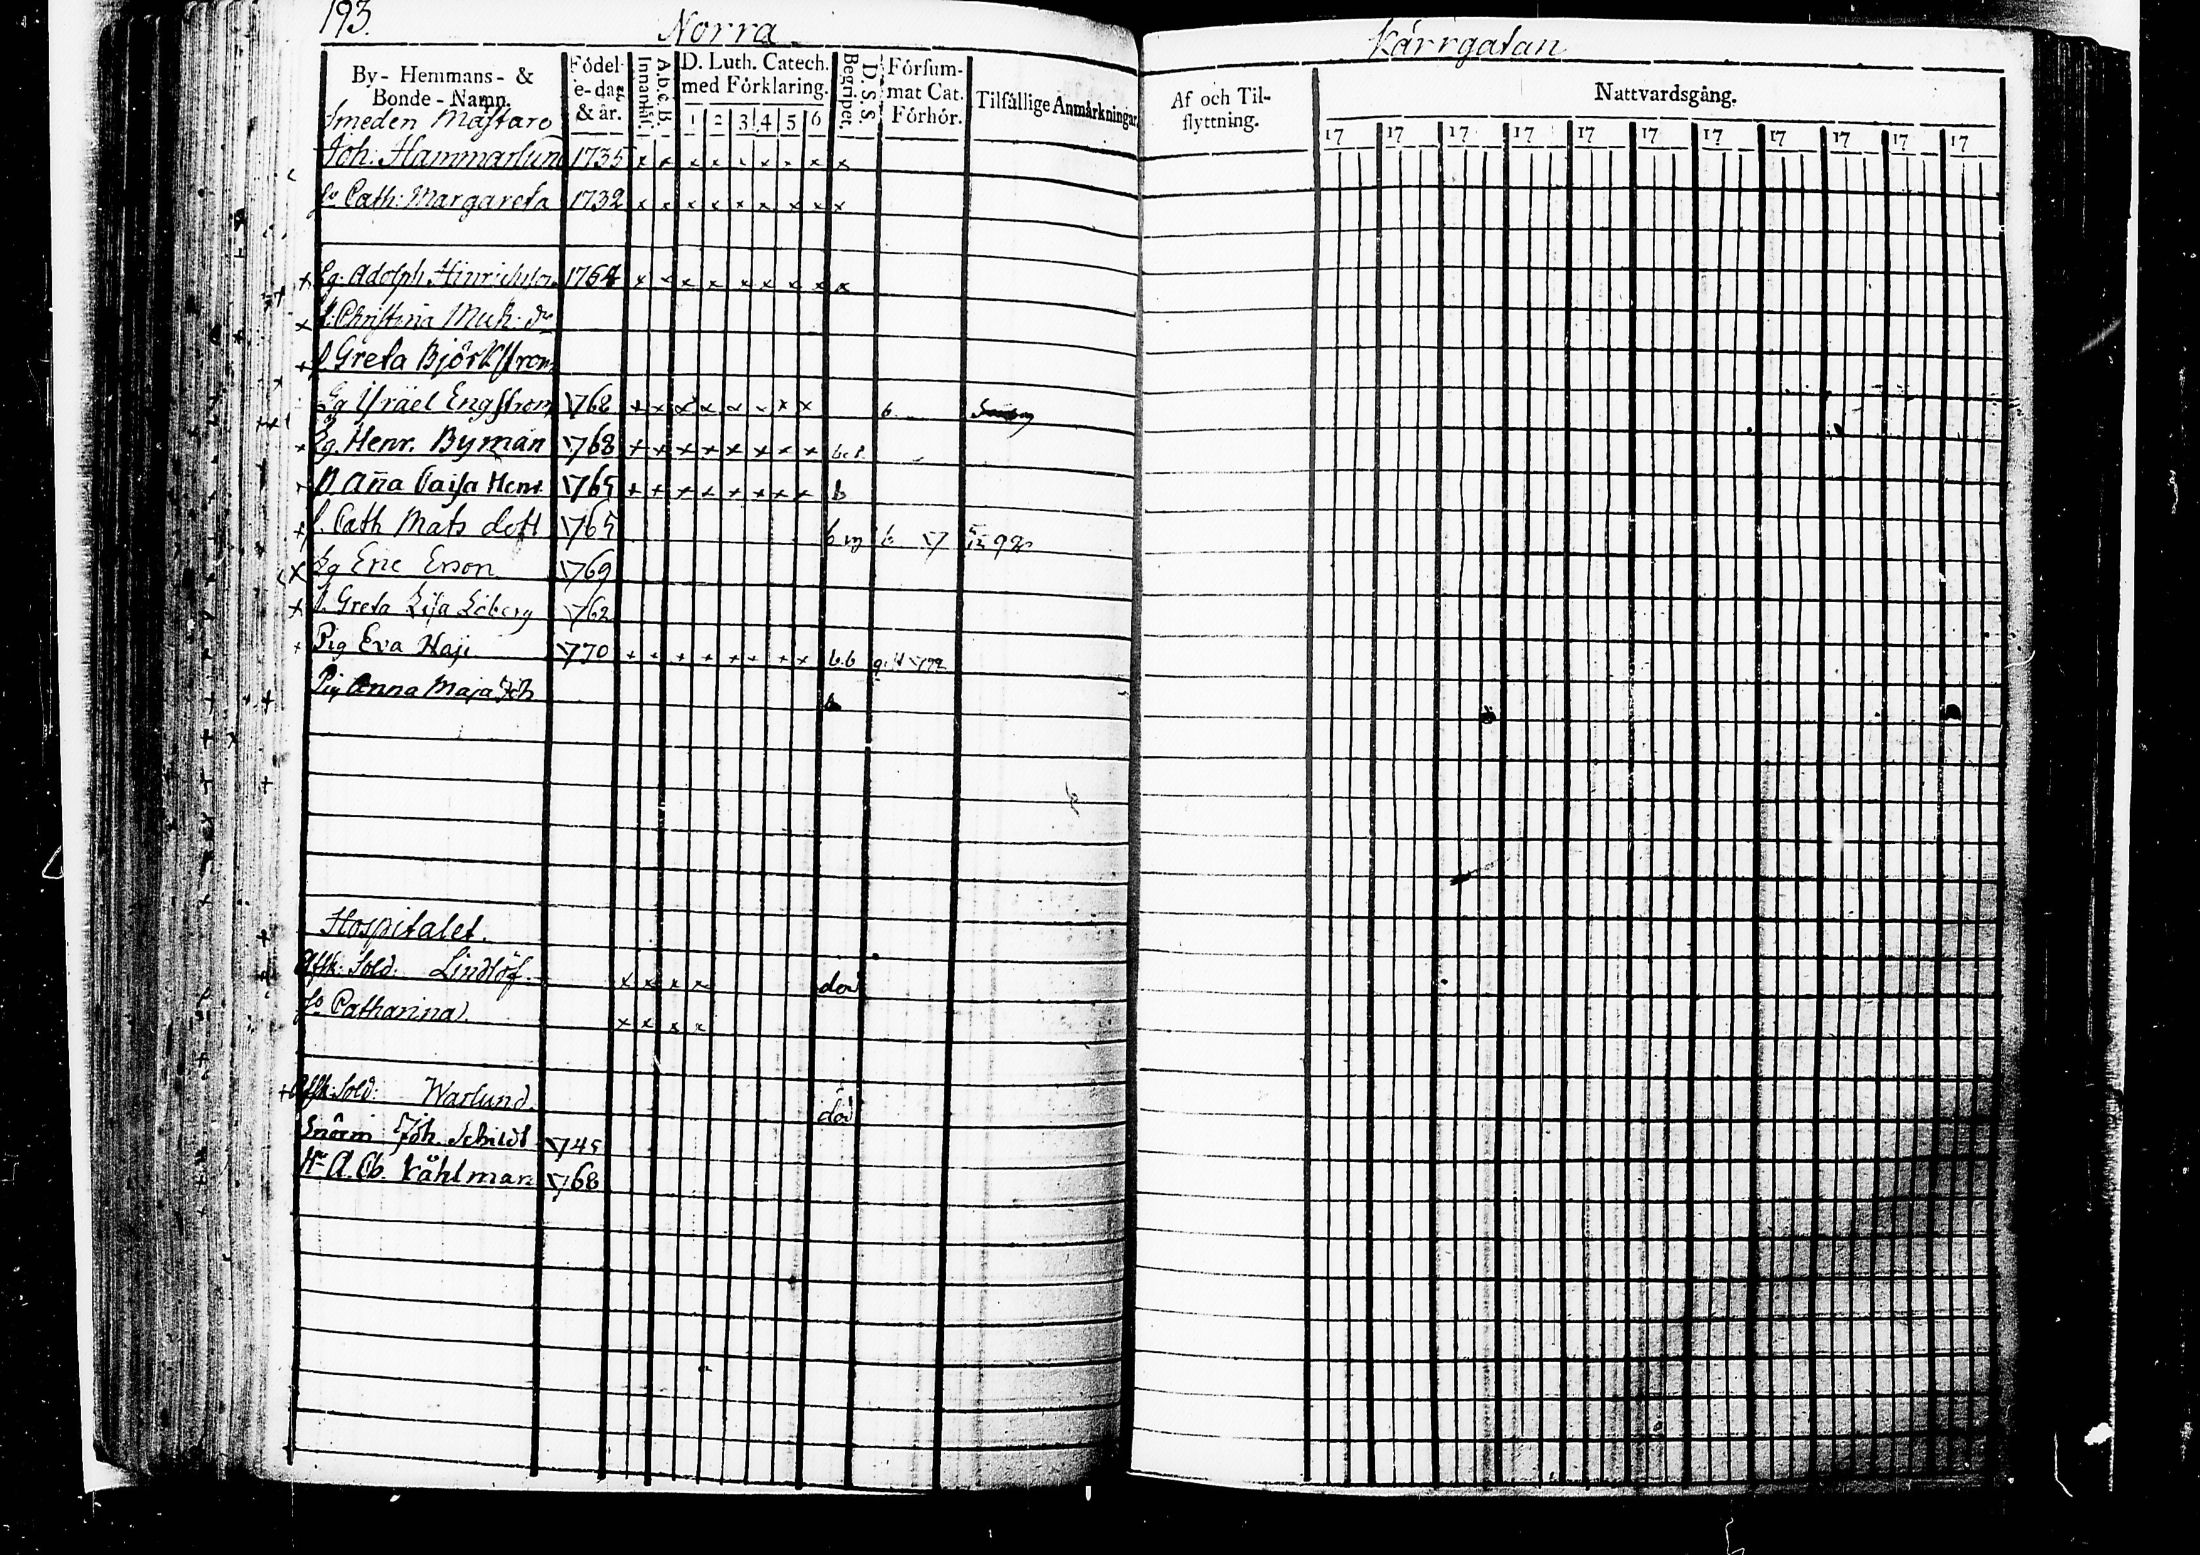 193.
Norra
By- Hemmans- &
Bonde-Namn.
Födel-
se-dag
& år.
Innanläs.
A.b.c.B.
D. Luth. Catech.
med Förklaring.
1 2 3 4 5 6
Begripet.
D. S. S.
Försum-
mat Cat.
Förhör.
Tilfällige Anmärkningar
Smeden Mästare
Joh: Hammarlund 1735 x x x x x x x x x
Cath: Margareta 1732 x x x x x x x x x
+ Adolph 1764 x x x x x x x x x
x Christina
+ Greta Björkström
Israel Engström 1768 x x x x x x x x b
+ Henr. Byman 1768 x x x x x x x x
Aña Caisa Henr 1765 x x x x x x x x b
+ Cath Mats dott 1765 b 92
x Eric Erson 1769
+ Greta Lisa 1762
+ Pig Eva 1770 x x x x x x x x b.b
+ Pig Anna Maja b
Hospitalet.
Afsk: Sold: Lindlöf x x x x död
Catharina x x x x
+ Afsk: Sold: Warlund död
Joh. Schildt 1745
Kåhlman 1768
Kärrgatan
Af och Til-
flyttning.
Nattvardsgång.
17 17 17 17 17 17 17 17 17 17 17